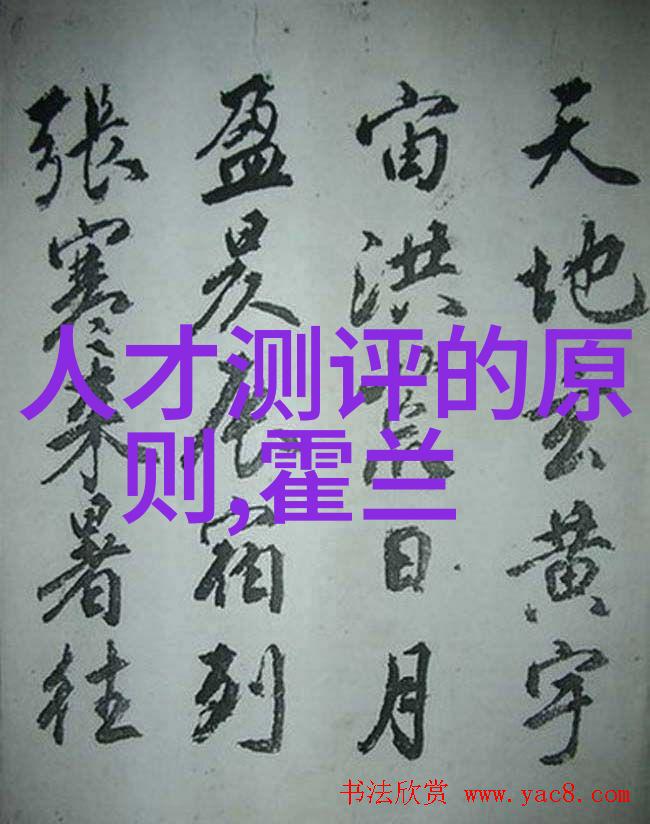 天地玄黄宇
宙洪荒日月
盈昃辰宿列
張寒来暑往
人才测评的原
则,霍兰
书法欣赏 www.yac8.com